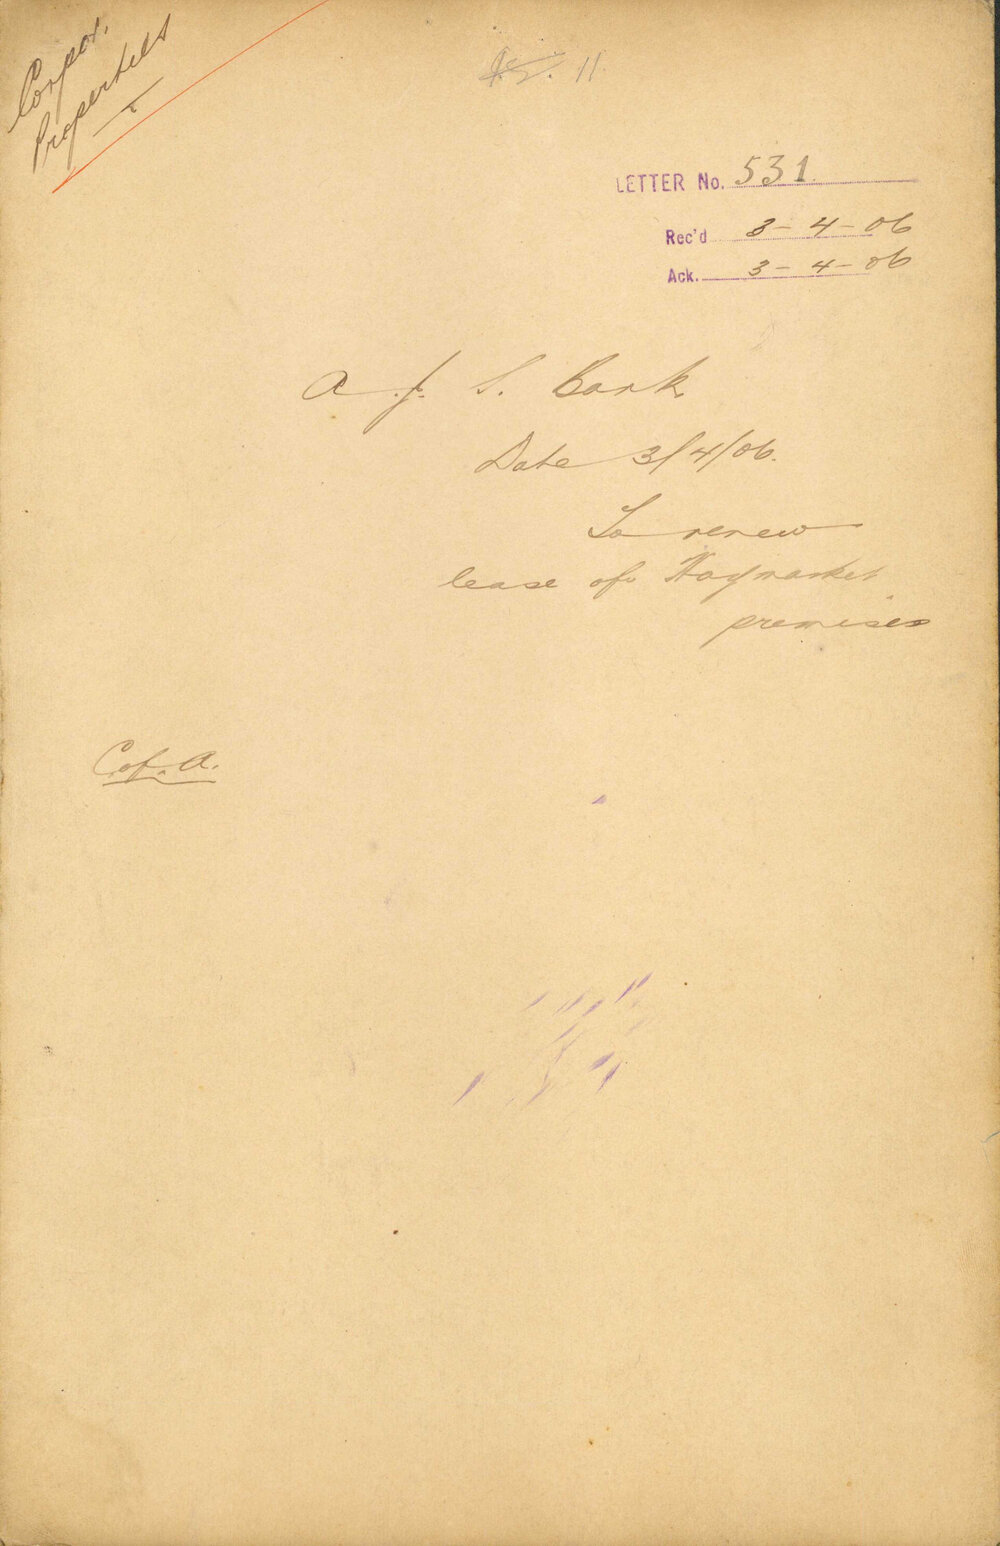 Corpor.
Properties
11.
LETTER No. 531.
Rec'd 3-4-06
Ack. 3-4-06
A. J. S. Bank
Date 3/4/06.
To renew
lease of Haymarket
premises
C. of. A.